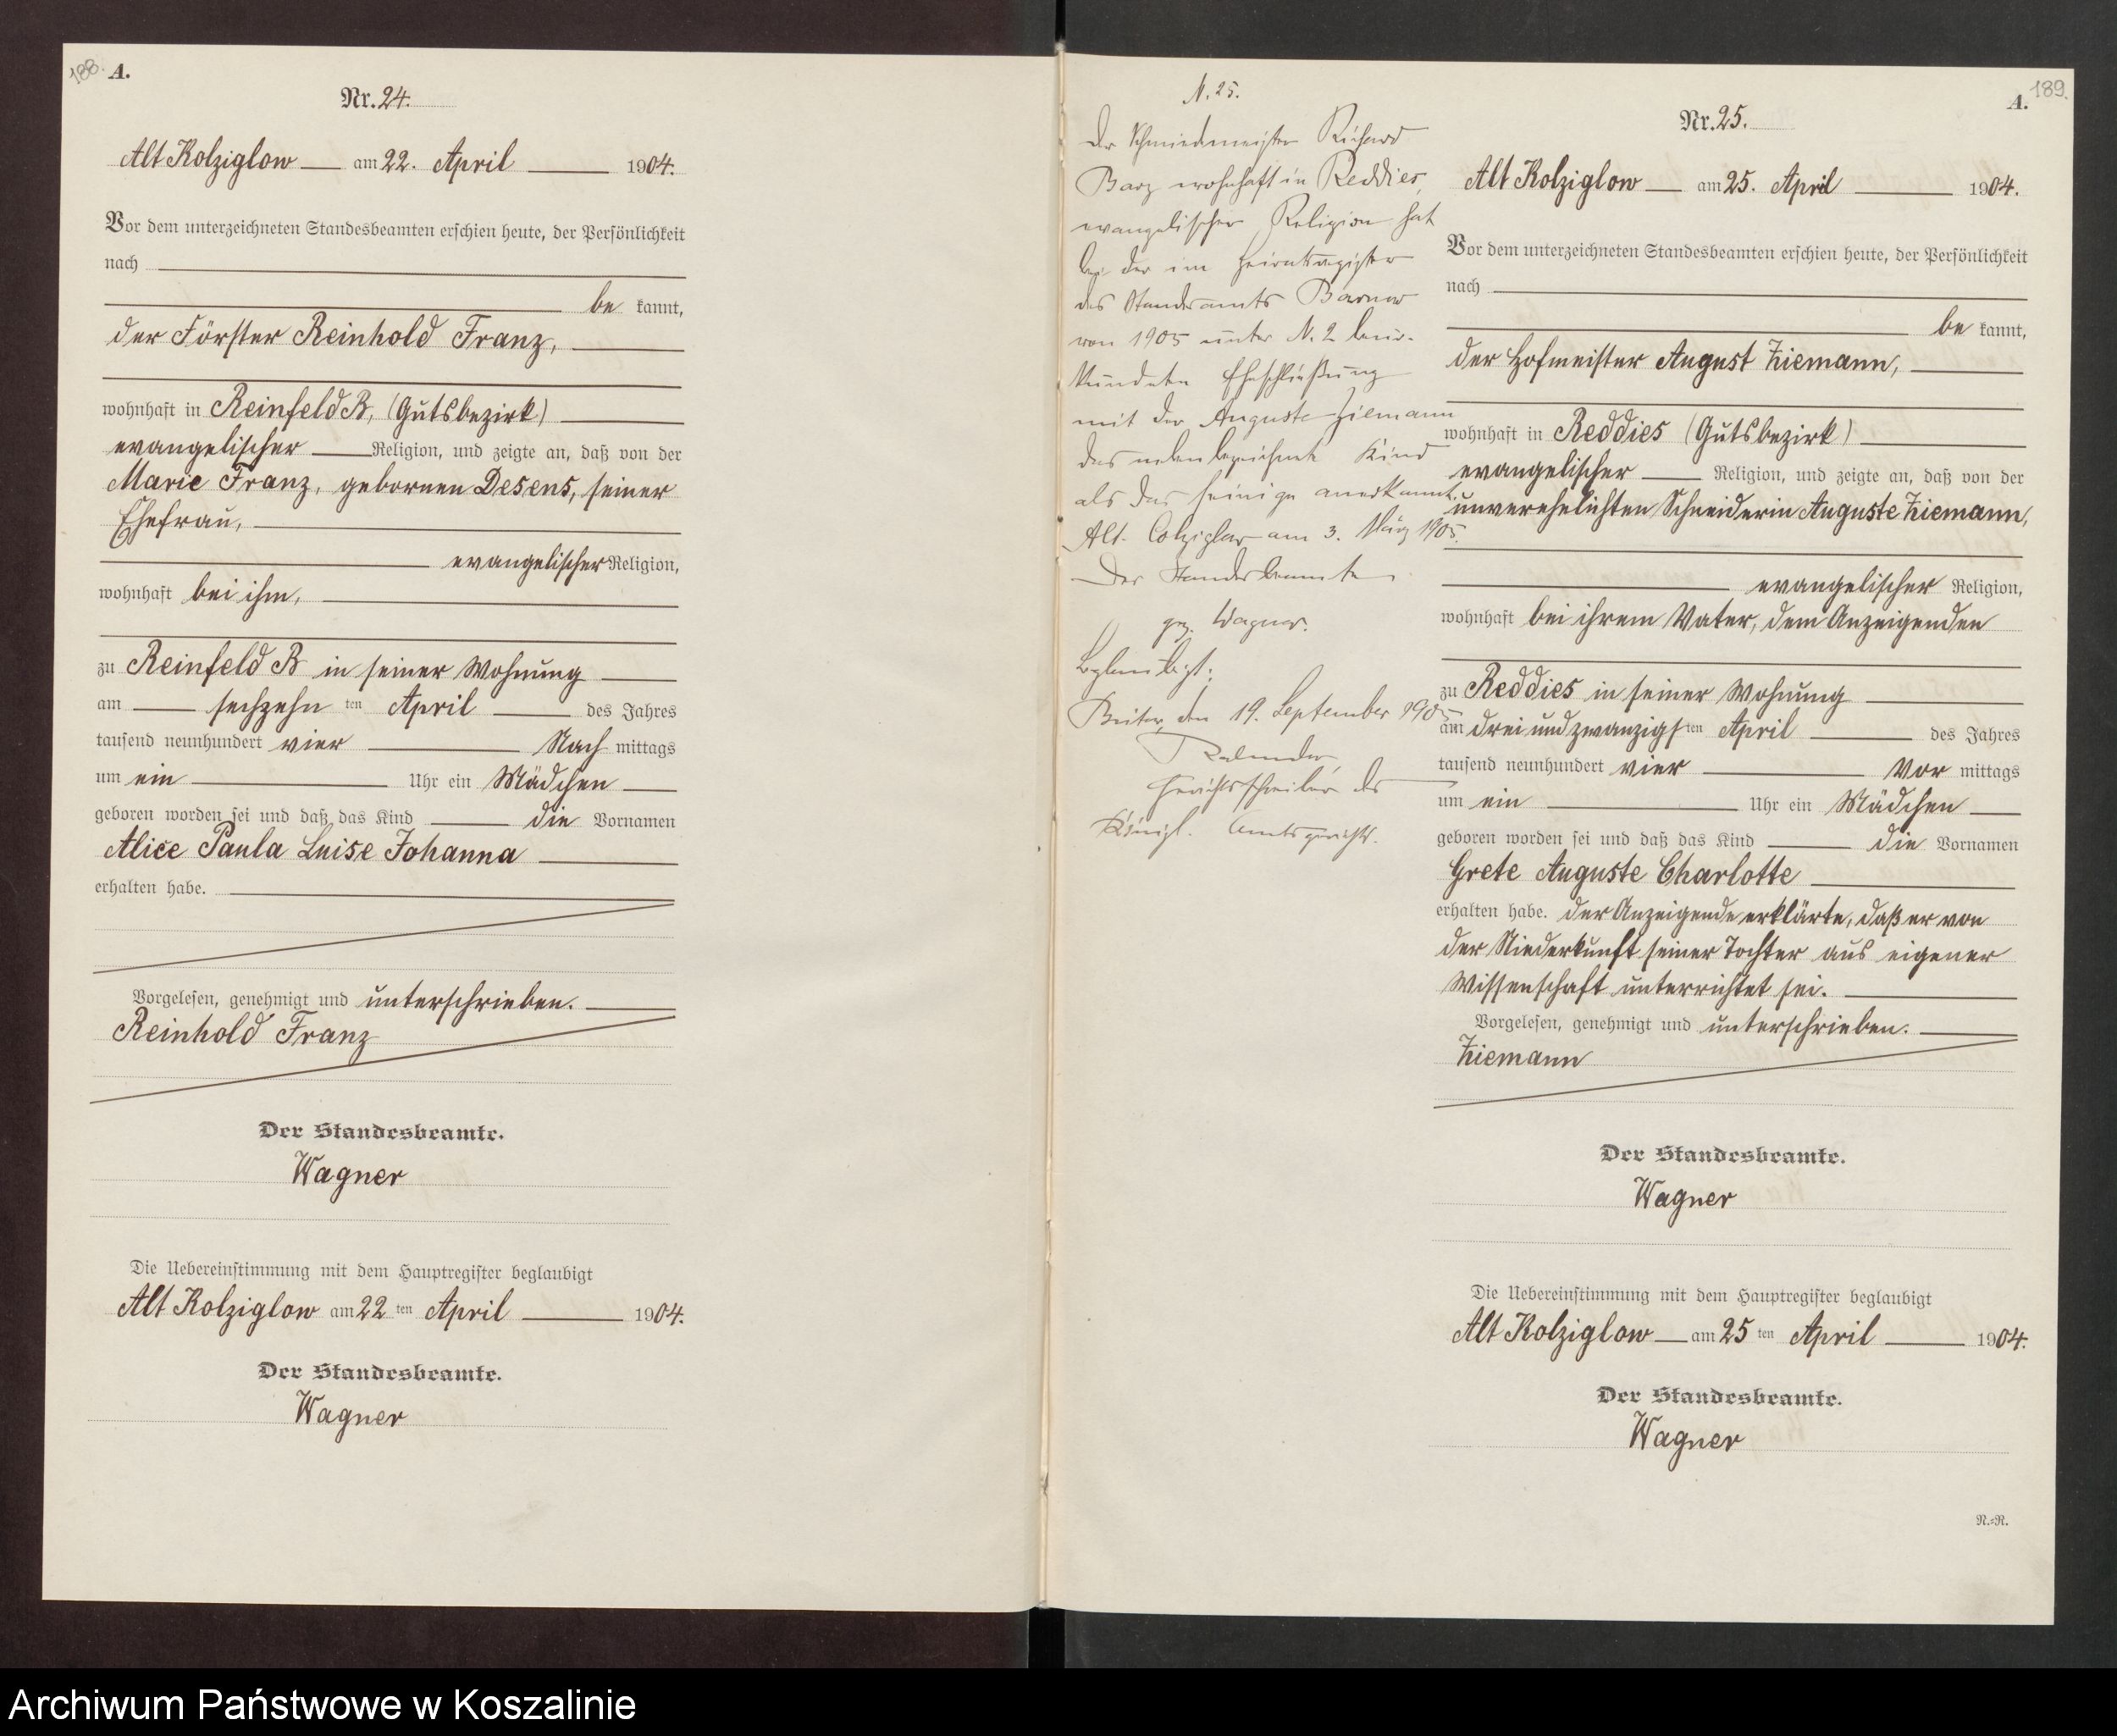 188.
A.
Nr. 24.
Alt Kolziglow am 22. April 1904.
Vor dem unterzeichneten Standesbeamten erschien heute, der Persönlichkeit
nach
be kannt,
der Förster Reinhold Franz,
wohnhaft in Reinfeld B, (Gutsbezirk)
evangelischer Religion, und zeigte an, daß von der
Marie Franz, gebornen Desens, seiner
Ehefrau,
evangelischer Religion,
wohnhaft bei ihm,
zu Reinfeld B in seiner Wohnung
am sechzehn ten April des Jahres
tausend neunhundert vier Nach mittags
um ein Uhr ein Mädchen
geboren worden sei und daß das Kind die Vornamen
Alice Paula Luise Johanna
erhalten habe.
Vorgelesen, genehmigt und unterschrieben.
Reinhold Franz
Der Standesbeamte.
Wagner
Die Uebereinstimmung mit dem Hauptregister beglaubigt
Alt Kolziglow am 22 ten April 1904.
Der Standesbeamte.
Wagner
N. 25.
Der Schmiedemeister Richard
Barz wohnhaft in Reddies,
evangelischer Religion hat
bei der im Heiratsregister
des Standesamts Barnow
von 1905 unter N. 2 beur-
kundeten Eheschließung
mit der Auguste Ziemann
das nebenbezeichnete Kind
als das seinige anerkannt.
Alt-Colziglow am 3. März 1905.
Der Standesbeamte
gez. Wagner.
Beglaubigt:
den 19. September 190
Gerichtsschreiber des
Königl. Amtsgerichts.
189.
A.
Nr. 25.
Alt Kolziglow am 25. April 1904.
Vor dem unterzeichneten Standesbeamten erschien heute, der Persönlichkeit
nach
be kannt,
der Hofmeister August Ziemann,
wohnhaft in Reddies (Gutsbezirk)
evangelischer Religion, und zeigte an, daß von der
unverehelichten Schneiderin Auguste Ziemann,
evangelischer Religion,
wohnhaft bei ihrem Vater, dem Anzeigenden
zu Reddies in seiner Wohnung
am drei und zwanzigs ten April des Jahres
tausend neunhundert vier Vor mittags
um ein Uhr ein Mädchen
geboren worden sei und daß das Kind die Vornamen
Grete Auguste Charlotte
erhalten habe. der Anzeigende erklärte, daß er von
der Niederkunft seiner Tochter aus eigener
Wissenschaft unterrichtet sei.
Vorgelesen, genehmigt und unterschrieben.
Ziemann
Der Standesbeamte.
Wagner
Die Uebereinstimmung mit dem Hauptregister beglaubigt
Alt Kolziglow am 25 ten April 1904.
Der Standesbeamte.
Wagner
N.=R.
Archiwum Państwowe w Koszalinie